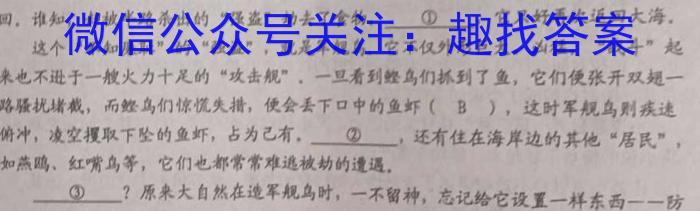 回。谁知
①
返回大海。
微信公众号关注：趣找答案
这个
起
来也不逊于一艘火力十足的“攻击舰”。一旦看到鲣鸟们抓到了鱼，它们便张开双翅一
路骚扰堵截，而鲣鸟们惊慌失措，便会丢下口中的鱼虾（ B ），这时军舰鸟则疾速
俯冲，凌空攫取下坠的鱼虾，占为己有。 ② ，还有住在海岸边的其他“居民”，
如燕鸥、红嘴鸟等，它们也都常常难逃被劫的遭遇。
③ ？原来大自然在造军舰鸟时，一不留神，忘记给它设置一样东西——防